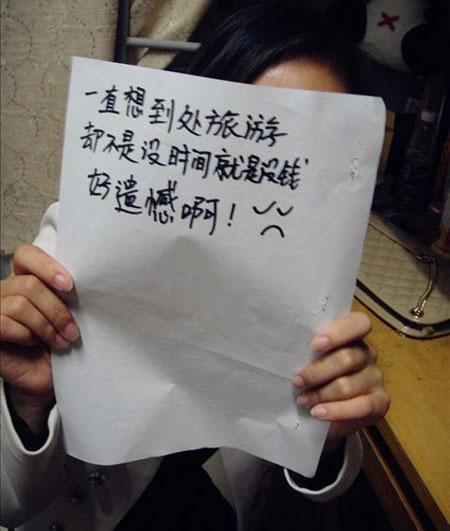 一直想到处旅游
却不是没时间就是没钱
好遗憾啊!